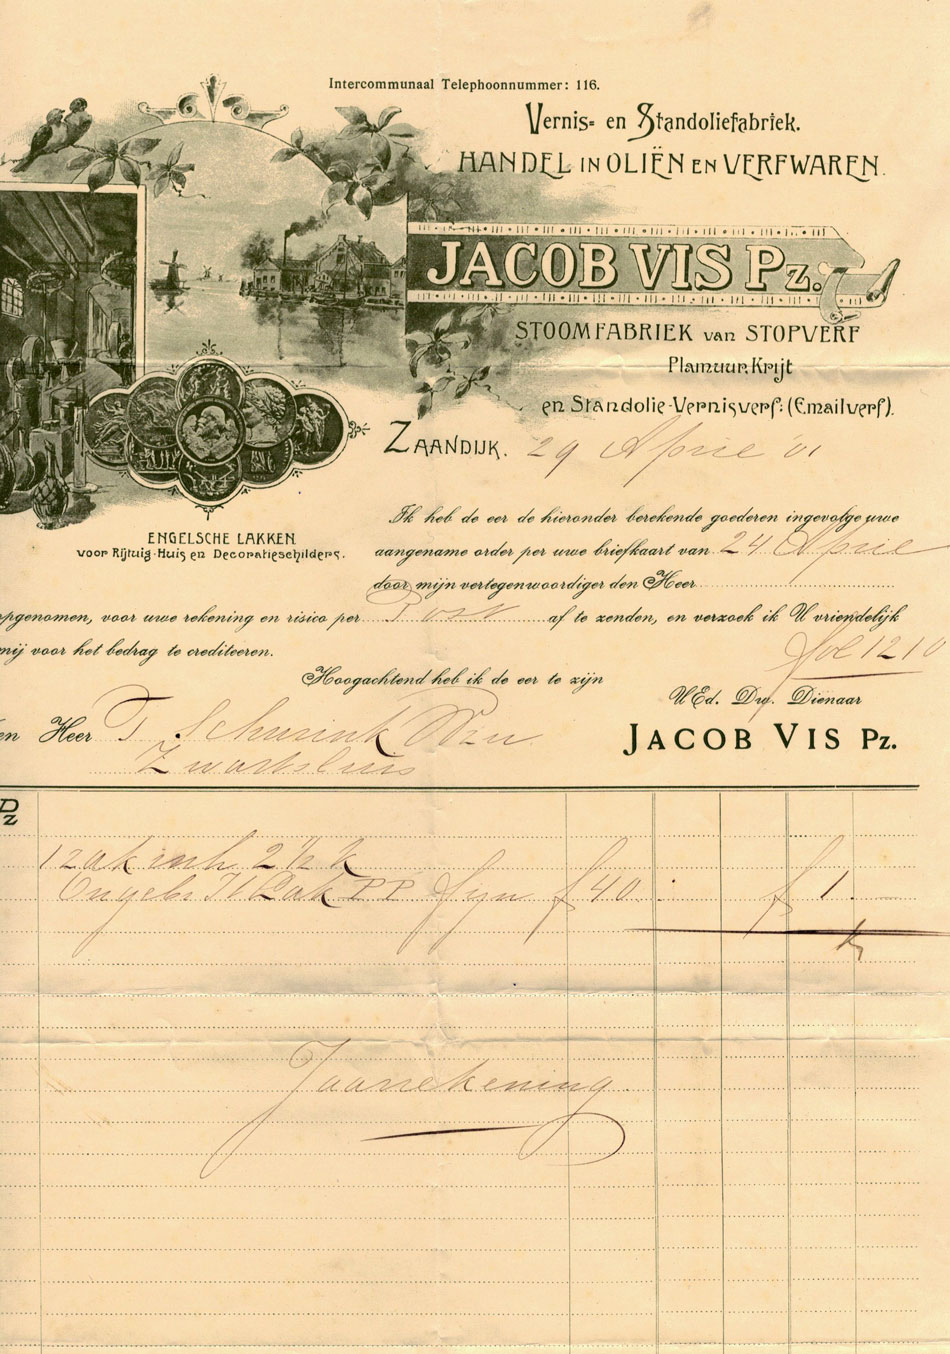 Intercommunaal Telephoonnummer: 116.
Vernis= en Standoliefabriek.
HANDEL IN OLIËN EN VERFWAREN.
JACOB VIS Pz.
STOOMFABRIEK van STOPVERF
Plamuur, Krijt
en Standolie-Vernisverf: (Emailverf).
ZAANDIJK. 29 April '01
ENGELSCHE LAKKEN
voor Rijtuig-Huis en Decoratieschilders.
Ik heb de eer de hieronder berekende goederen ingevolge uwe
aangename order per uwe briefkaart van 24 April
door mijn vertegenwoordiger den Heer
opgenomen, voor uwe rekening en risico per Post af te zenden, en verzoek ik U vriendelijk
mij voor het bedrag te crediteeren.
fol 1210
Hoogachtend heb ik de eer te zijn
UEd. Dw. Dienaar
JACOB VIS Pz.
en Heer T. Schurink Wzn
Zwartsluis
PZ
1 zak inh 2 1/2 k
Engels Pak PP fijn f 40 : f 1 . —
Jaarrekening